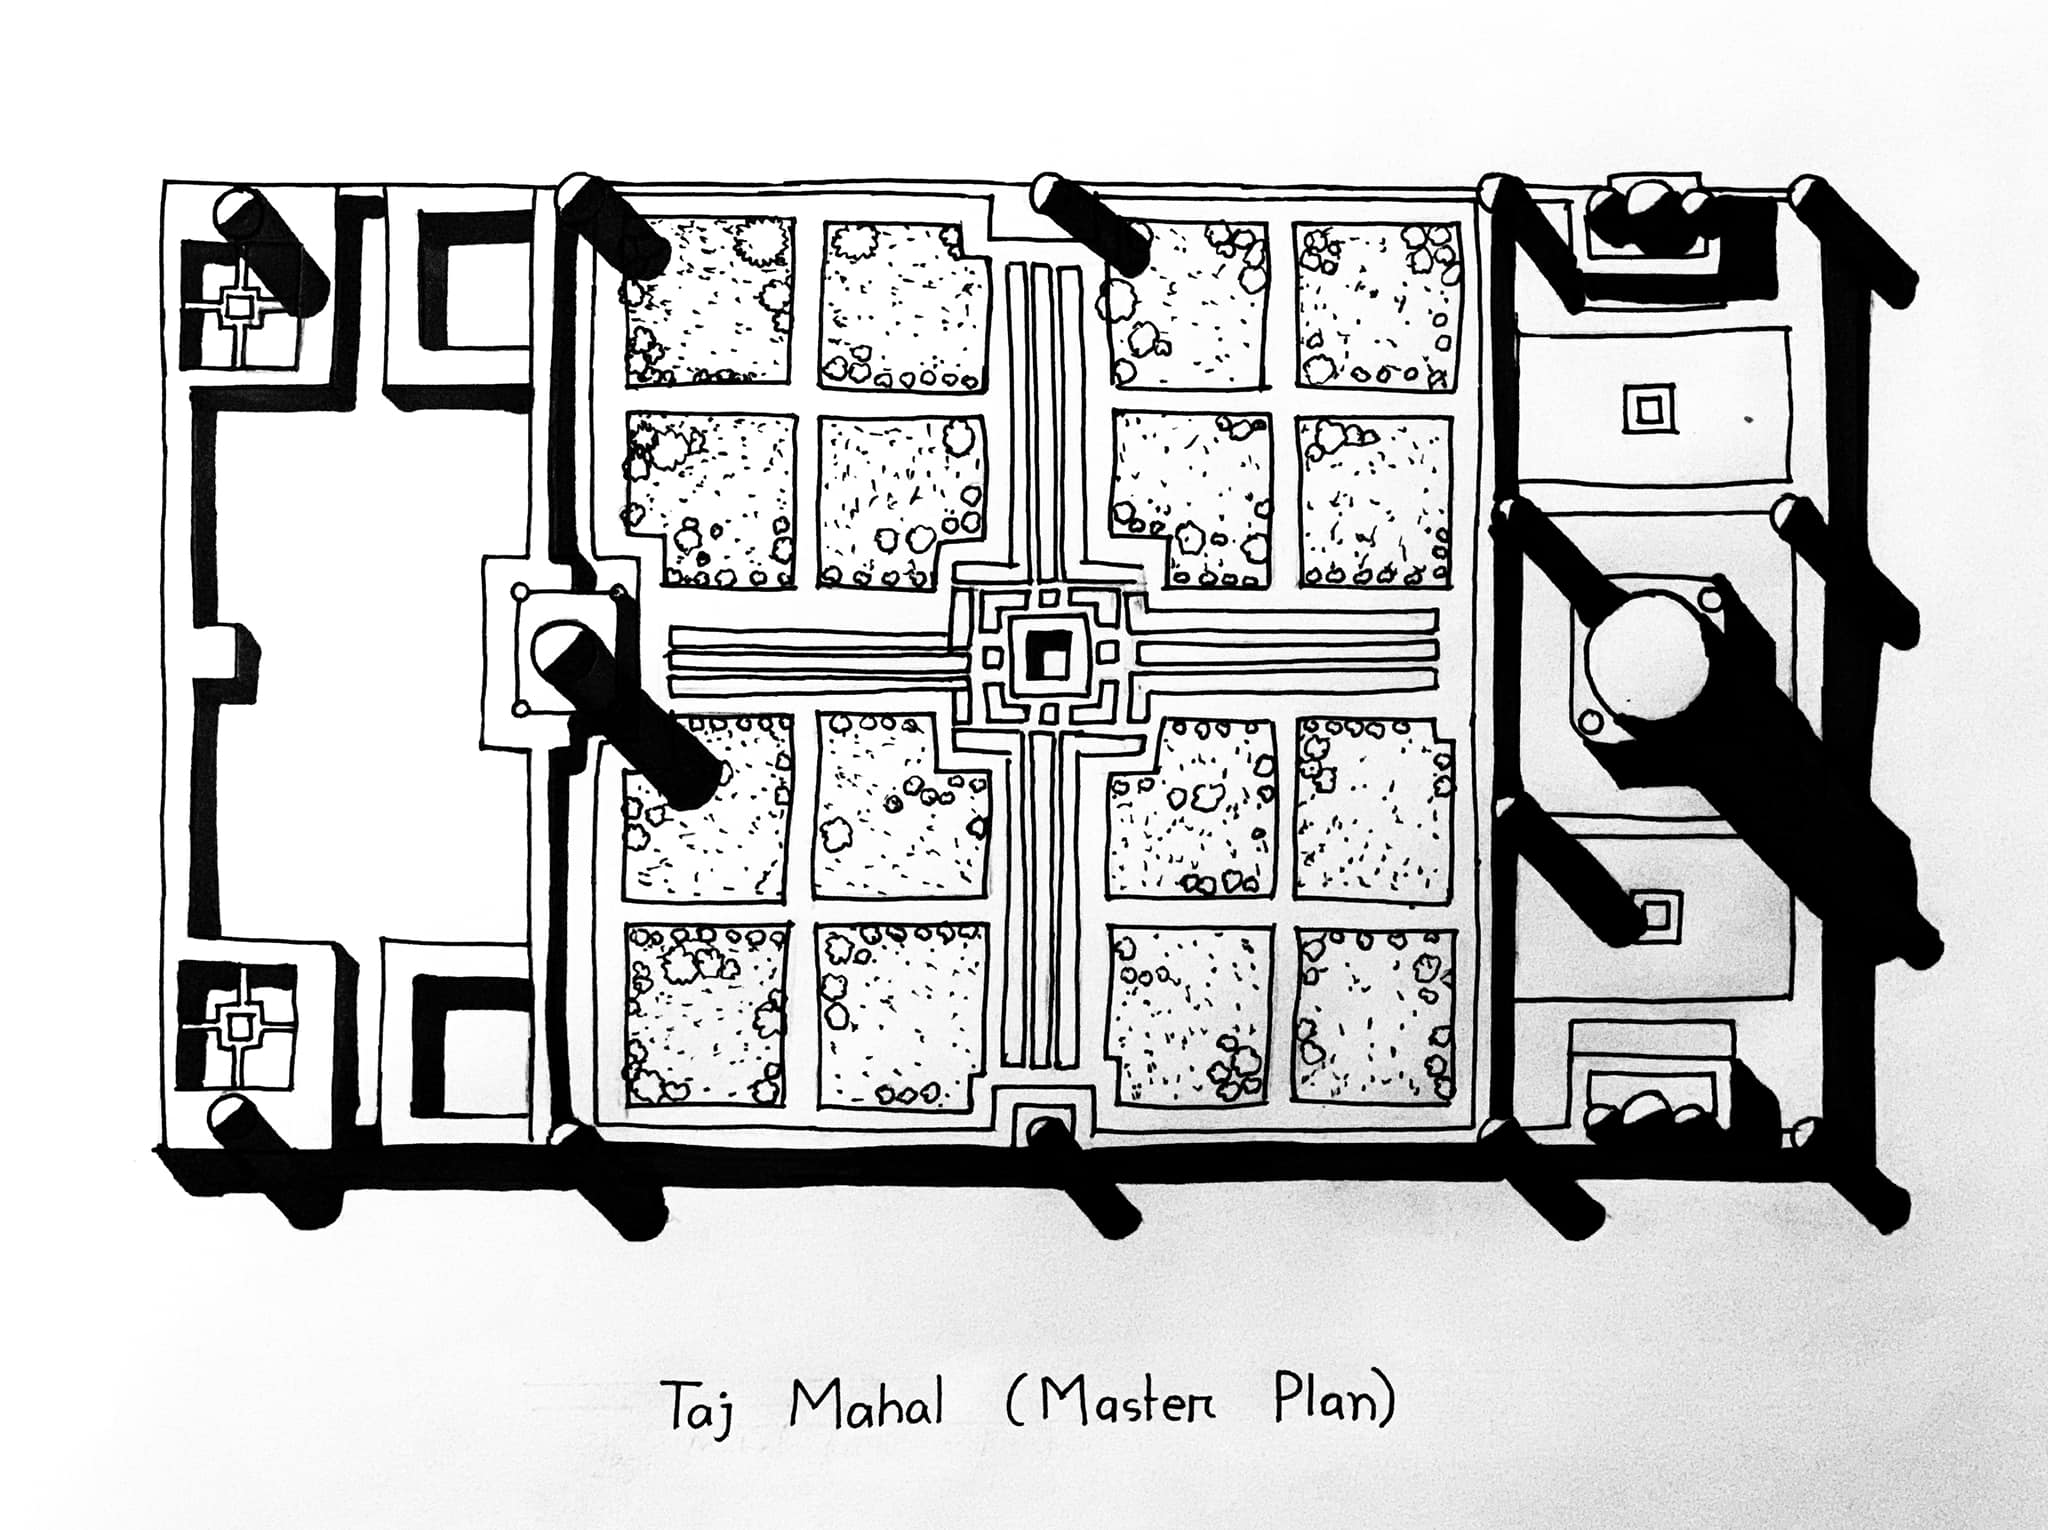 Taj Mahal (Master Plan)